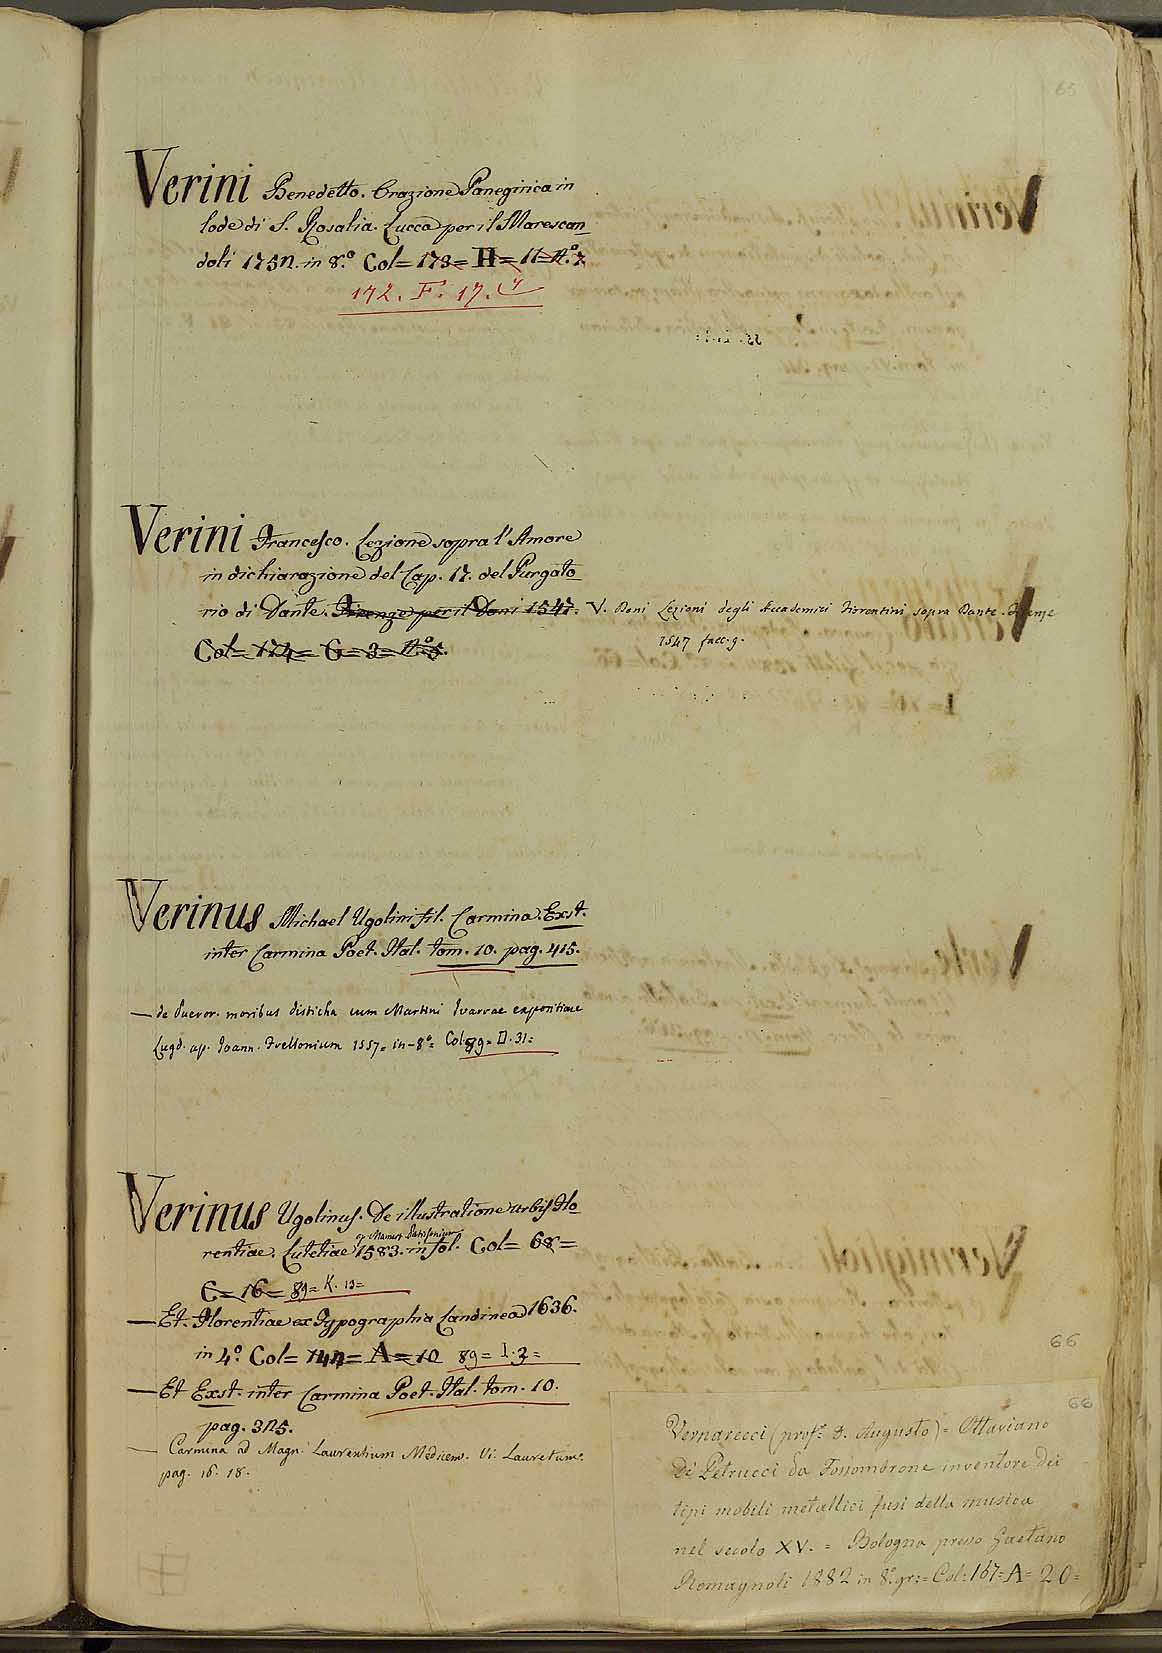 65
Verini Benedetto. Orazione Panegirica in
lode di S. Rosalia. Lucca per il Marescan
doli 175n. in 8.º Col= 173= H= 11= N.º 7
172. F. 17.
Verini Francesco. Lezione sopra l'Amore
in dichiarazione del Cap. 17. del Purgato
rio di Dante. Firenze per il Doni 1547. V. Doni Lezioni degli Accademici Fiorentini sopra Dante. Firenze
1547 facc. 9.
Col= 174= G= 3= N.º 5.
Verinus Michael Ugolini fil. Carmina. Exst.
inter Carmina Poet. Ital. tom. 10. pag. 415.
— de Pueror. moribus disticha cum Martini Ivarrae expositione
Lugd. ap. Joann. Frellonium 1557= in-8º= Col: 89= D. 31=
Verinus Ugolinus. De illustratione urbis Flo
rentiae. Lutetiae ap. Mamert. Patissonium 1583. in fol. Col= 68=
C= 16= 89= K. 13=
— Et. Florentiae ex Typographia Landinea 1636.
in 4.º Col= 144= A= 10 89= I. 3=
— Et Exst. inter Carmina Poet. Ital. tom. 10.
pag. 3n5.
— Carmina ad Magn. Laurentium Medicem. Vi. Lauretum.
pag. 16. 18.
66
66
Vernarecci (prof.e D. Augusto)= Ottaviano
Di Petrucci da Fossombrone inventore dei
tipi mobili metallici fusi della musica
nel secolo XV. = Bologna presso Gaetano
Romagnoli 1882 in 8.º gr:= Col: 167= A= 20=